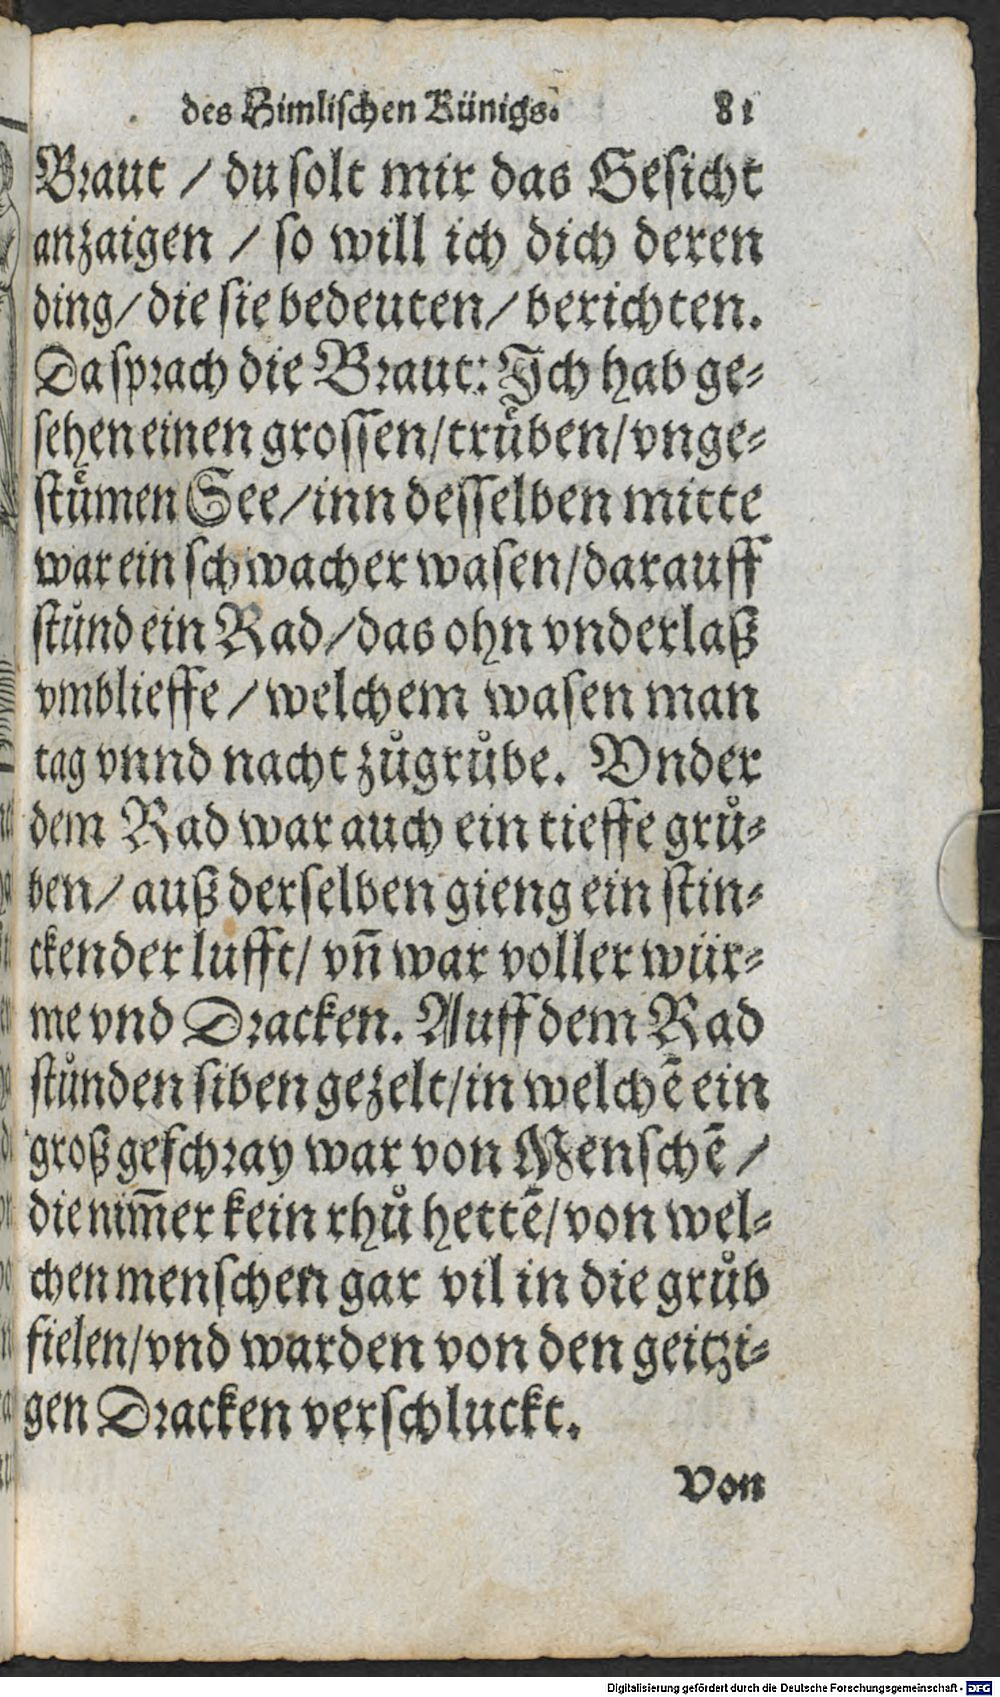 des Himlischen Künigs. 81
Braut / du solt mir das Gesicht
anzaigen / so will ich dich deren
ding/ die sie bedeuten/ berichten.
Da sprach die Braut: Jch hab ge-
sehen einen grossen/trůben/vnge-
stůmen See/inn desselben mitte
war ein schwacher wasen/darauff
stůnd ein Rad/das ohn vnderlaß
vmblieffe / welchem wasen man
tag vnnd nacht zůgrůbe. Vnder
dem Rad war auch ein tieffe grů-
ben/ auß derselben gieng ein stin-
ckender lufft/ vn̄ war voller wür-
me vnd Dracken. Auff dem Rad
stůnden siben gezelt/in welchē ein
groß geschray war von Menschē /
die nim̄er kein rhů hettē/von wel-
chen menschen gar vil in die grůb
fielen/vnd warden von den geitzi-
gen Dracken verschluckt.
Von
Digitalisierung gefördert durch die Deutsche Forschungsgemeinschaft - DFG